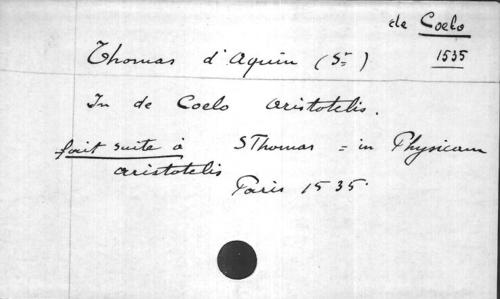 de Coelo
1535
Thomas d'Aquin (St)
In de Coelo Aristotelis.
fait suite à S Thomas = in Physicam
Aristotelis
Paris 1535.